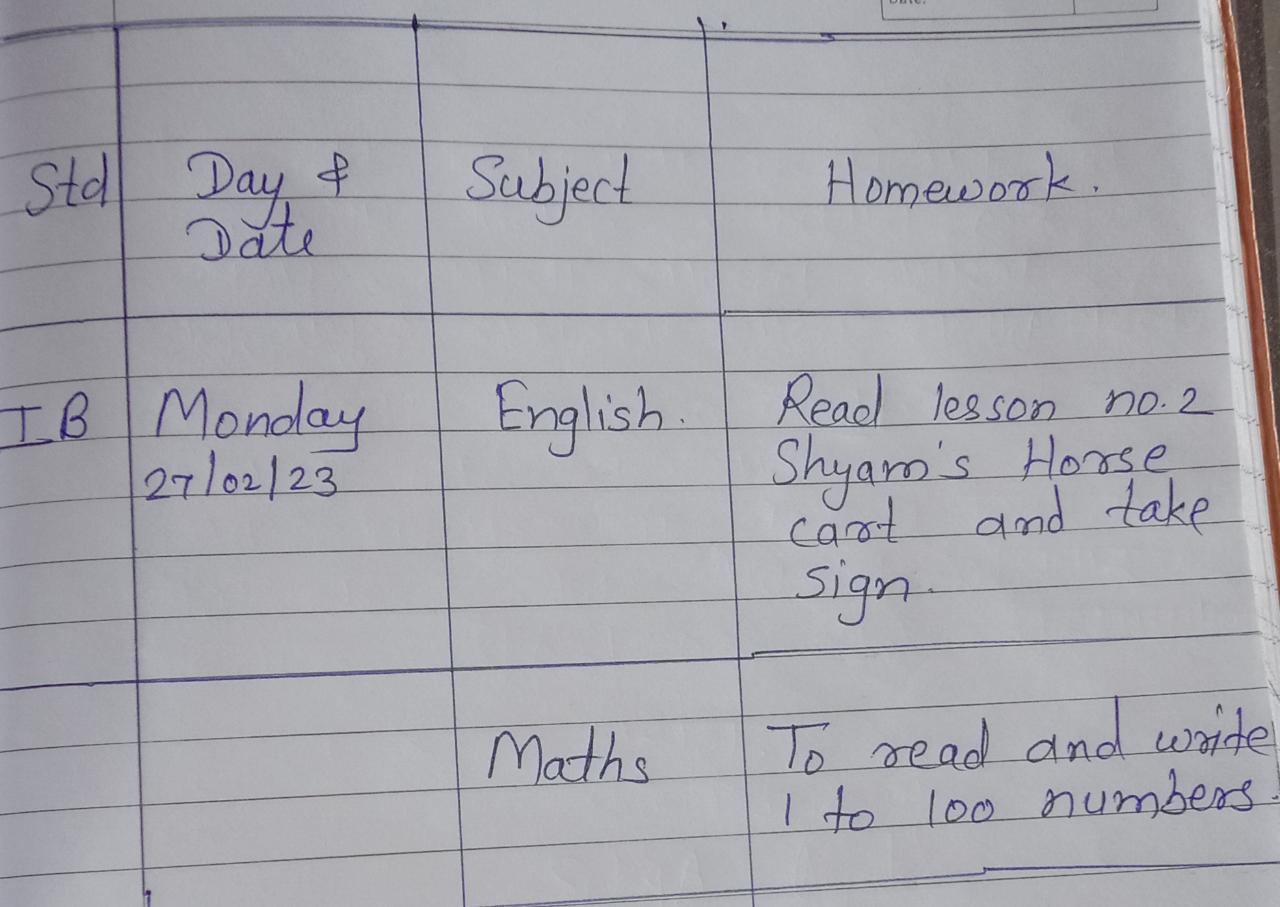 Date:
Std Day & Subject Homework.
Date
I B Monday English. Read lesson no. 2
27/02/23 Shyam's Horse
cart and take
sign.
Maths To read and write
1 to 100 numbers.